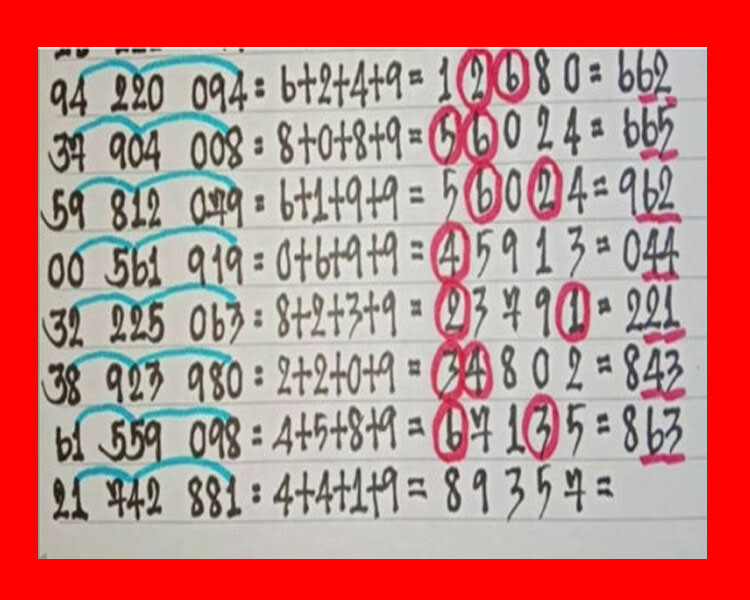 94 220 094 = 6+2+4+9 = 1 2 6 8 0 = 662
37 904 008 = 8+0+8+9 = 5 6 0 2 4 = 665
59 812 079 = 6+1+9+9 = 5 6 0 2 4 = 962
00 561 919 = 0+6+9+9 = 4 5 9 1 3 = 044
32 225 063 = 8+2+3+9 = 2 3 7 9 1 = 221
38 923 980 = 2+2+0+9 = 3 4 8 0 2 = 843
61 559 098 = 4+5+8+9 = 6 7 1 3 5 = 863
21 742 881 = 4+4+1+9 = 8 9 3 5 7 =